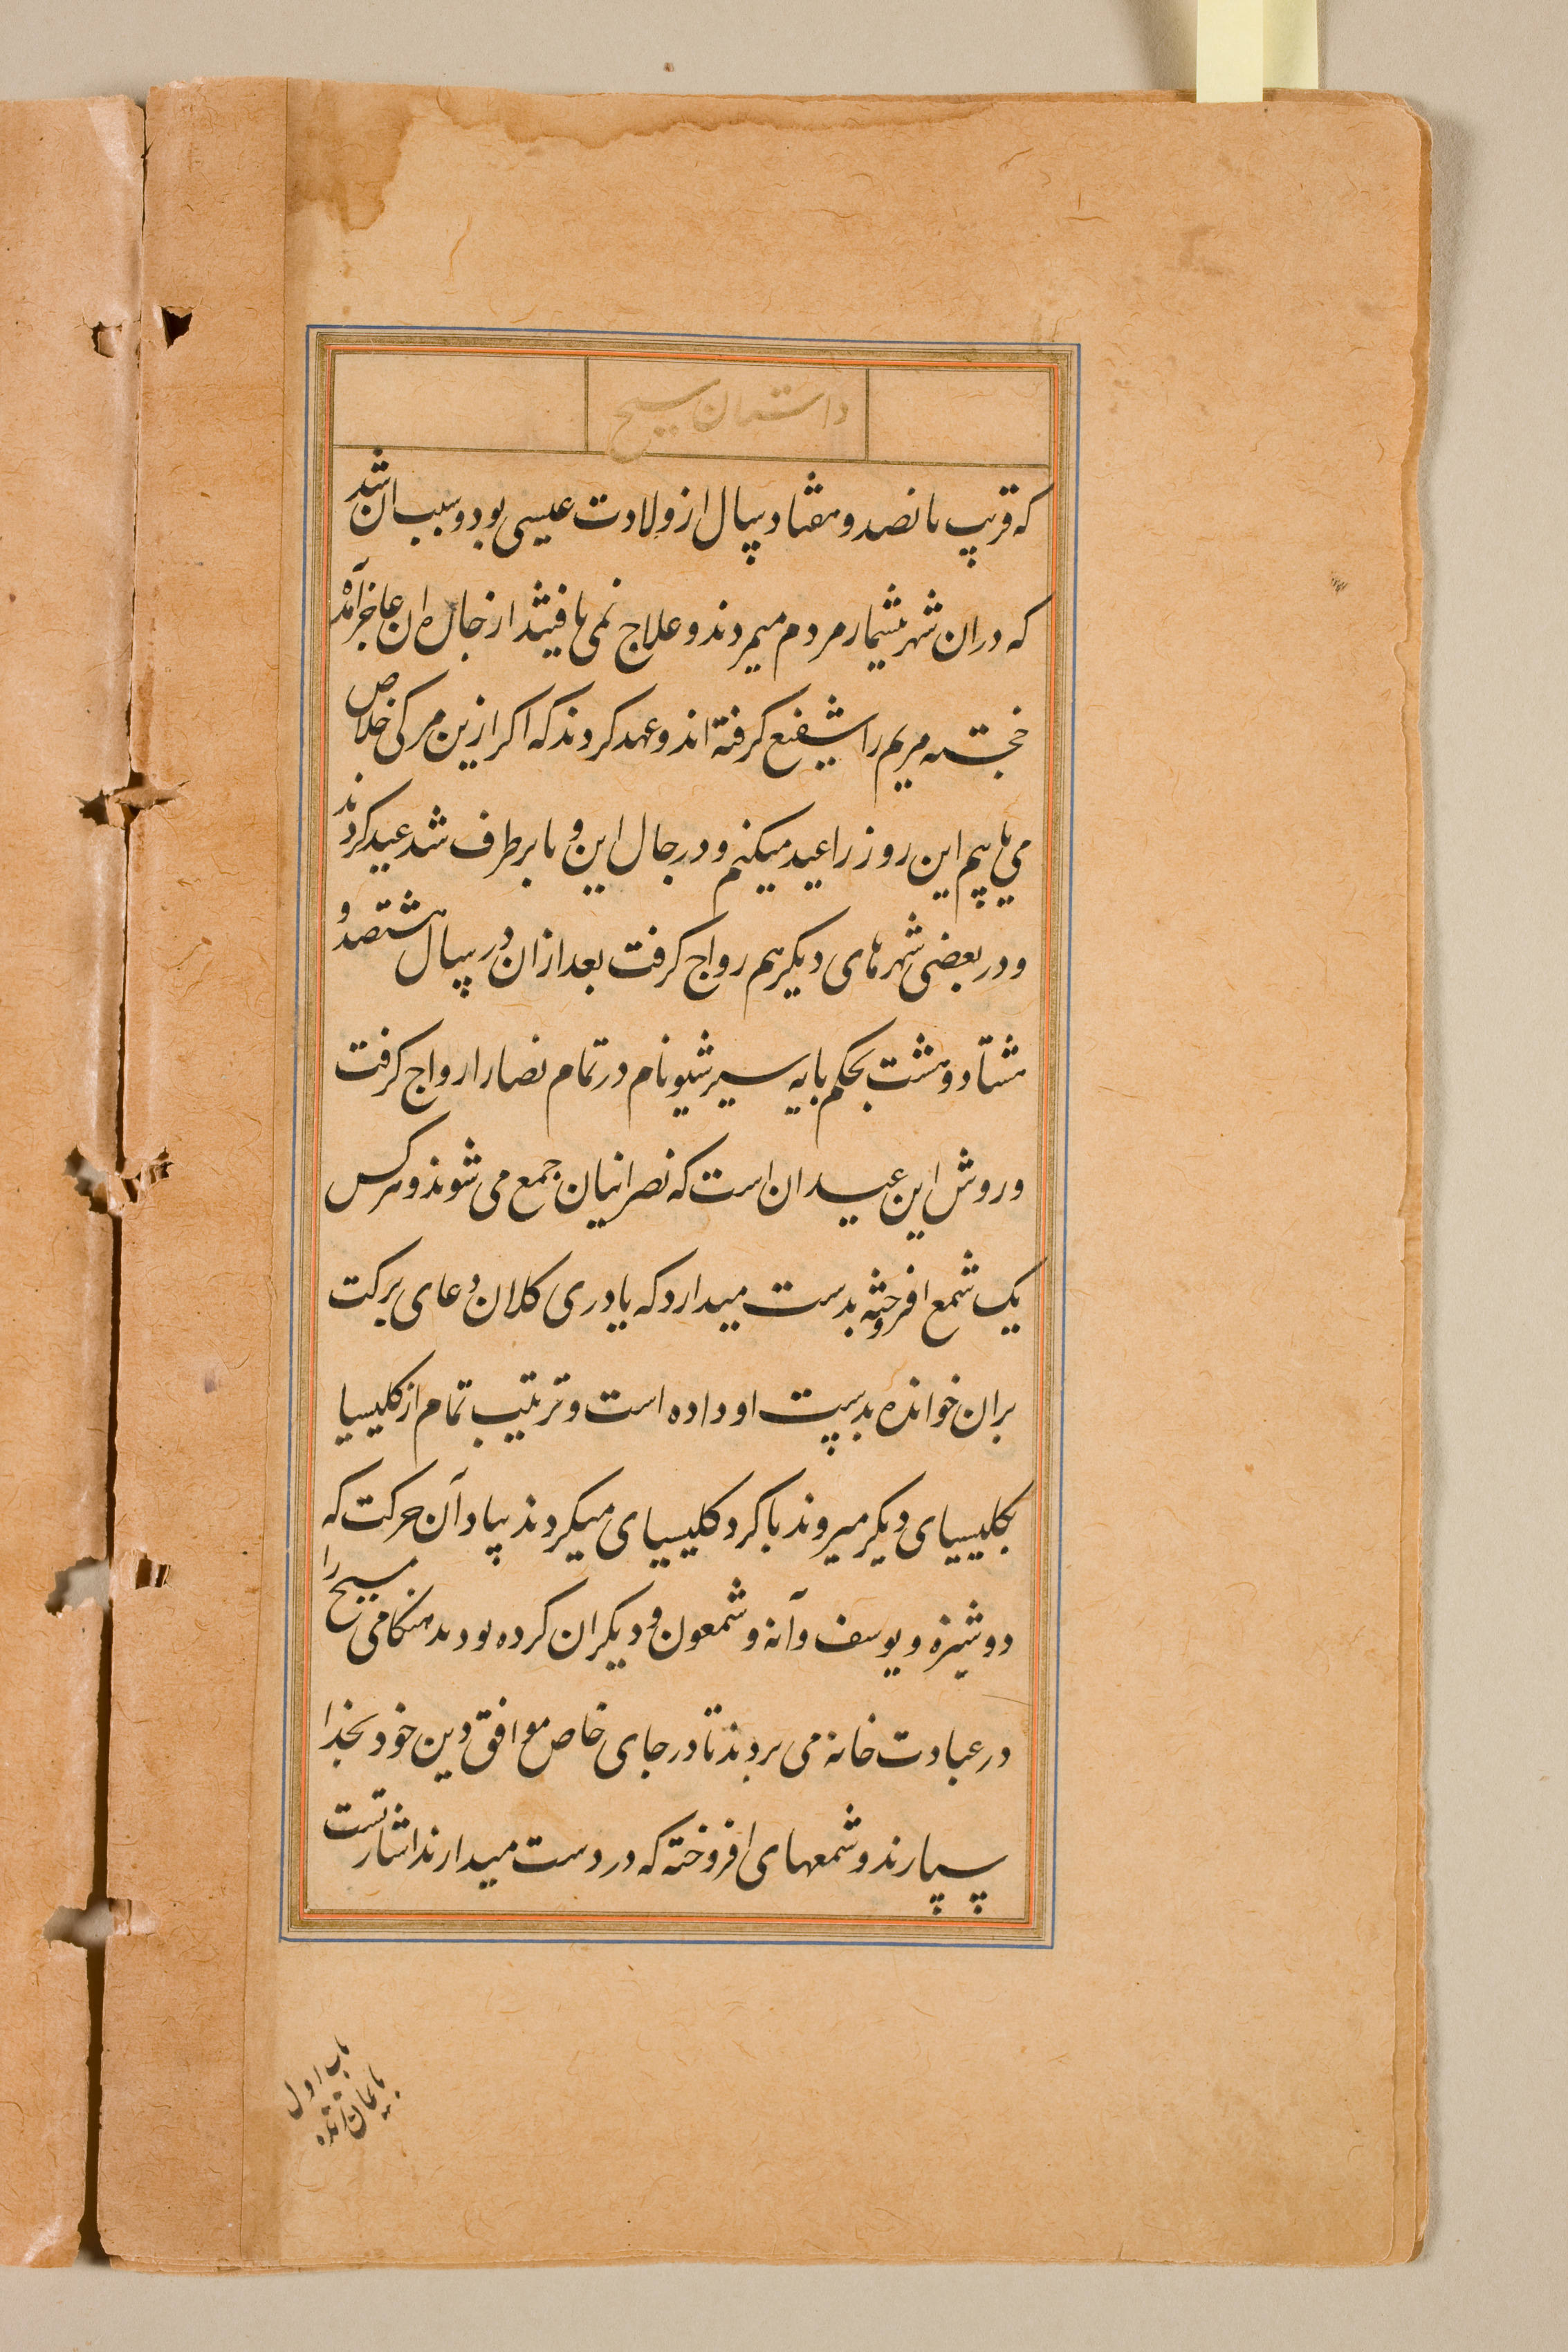 داستان مسیح
که قریب پانصد و هفتاد سال از ولادت عیسی بود و سبب ان شد
که دران شهر بیشمار مردم میمردند و علاج نمی یافتند از حال ان عاجز آمده
خجسته مریم را شفیع کرفته اند و عهد کردند که اکر ازین مرکی خلاص
می یابیم این روز را عید میکنم و در حال این وبا برطرف شد عید کردند
و در بعضی شهرهای دیکر هم رواج کرفت بعد ازان در سال هشتصد و
هشتاد و هشت بحکم پاپه سیرشیو نام در تمام نصارا رواج کرفت
و روش این عید ان است که نصرانیان جمع می شوند و هرکس
یک شمع افروخته بدست میدارد که پادری کلان دعای برکت
بران خوانده بدست او داده است و ترتیب تمام از کلیسیا
بکلیسیای دیکر میروند یا کرد کلیسیای میکردند بیاد آن حرکت که
دوشیزه و یوسف و آنه و شمعون و دیکران کرده بودند هنکامی مسیح را
در عبادت خانه می بردند تا در جای خاص موافق دین خود بخدا
سپارند و شمعهای افروخته که در دست میدارند اشارتست
باب اول